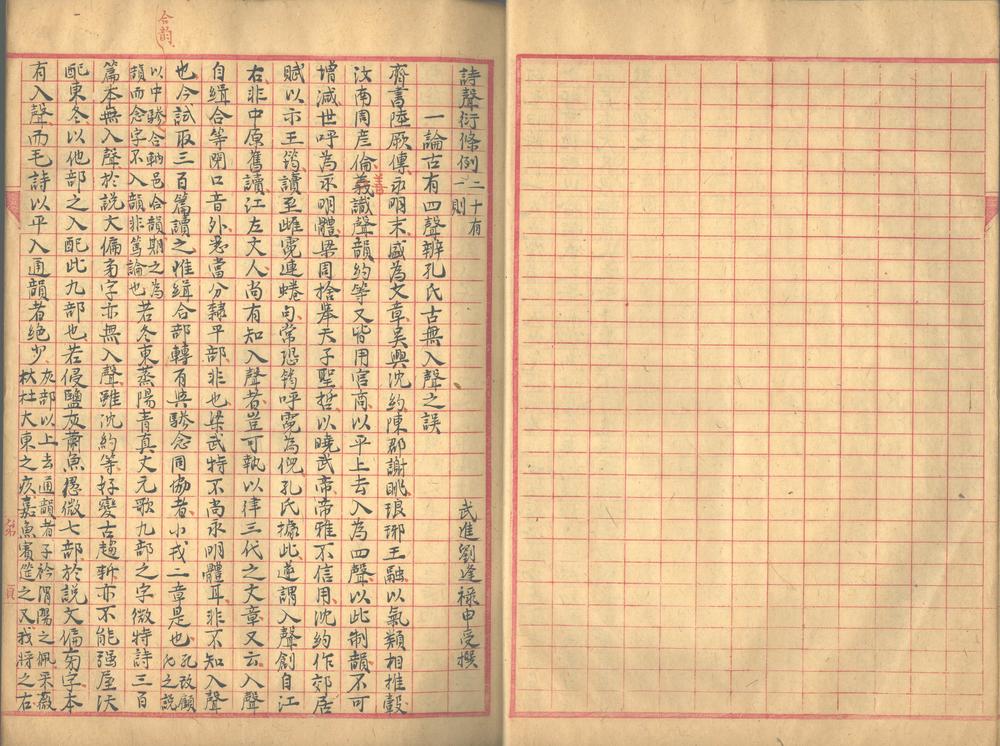 合韵
詩聲衍條例二十有一則
武進劉逢祿申受撰
一論古有四聲辨孔氏古無入聲之誤
齊書陸厥傳永明末盛為文章吳興沈約陳郡謝眺琅琊王融以氣類相推轂
汝南周彦倫善識聲韻約等文皆用宮商以平上去入為四聲以此制韻不可
增減世呼為永明體梁周捨舉天子聖哲以曉武帝帝雅不信用沈約作郊居
賦以示王筠讀至雌霓連蜷句常恐筠呼霓為倪孔氏據此遂謂入聲創自江
右非中原舊讀江左文人尚有知入聲者豈可執以律三代之文章又云入聲
自緝合等閉口音外悉當分隸平部非也梁武特不尚永明體耳非不知入聲
也今試取三百篇讀之惟緝合部轉有與驂念同協者小戎二章是也孔改顧氏之說
以中驂合軜邑合韻期之為韻而念字不入韻非篤論也若冬東蒸陽青真文元歌九部之字微特詩三百
篇本無入聲於說文偏旁字亦無入聲雖沈約等好變古趨新亦不能强屋沃
配東冬以他部之入配此九部也若侵鹽灰蕭魚愚微七部於說文偏旁字本
有入聲而毛詩以平入通韻者绝少灰部以上去通韻者子衿渭陽之佩采薇杕杜大東之疚嘉魚賓筵之又我將之右
第
頁